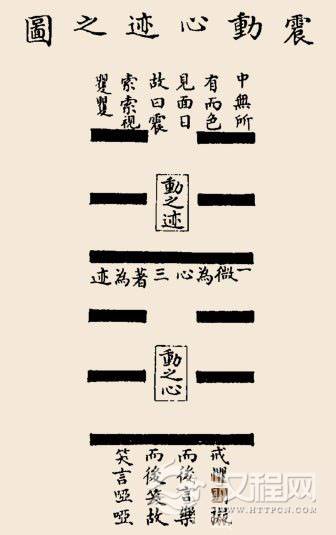 震動心迹之圖
中無所
有而色
見面日
故曰震
索索視
矍矍
動之迹
一微為心三著為迹
動之心
戒懼則擬
而後言樂
而後笑故
笑言啞啞
汉程网
WWW.HTTPCN.COM